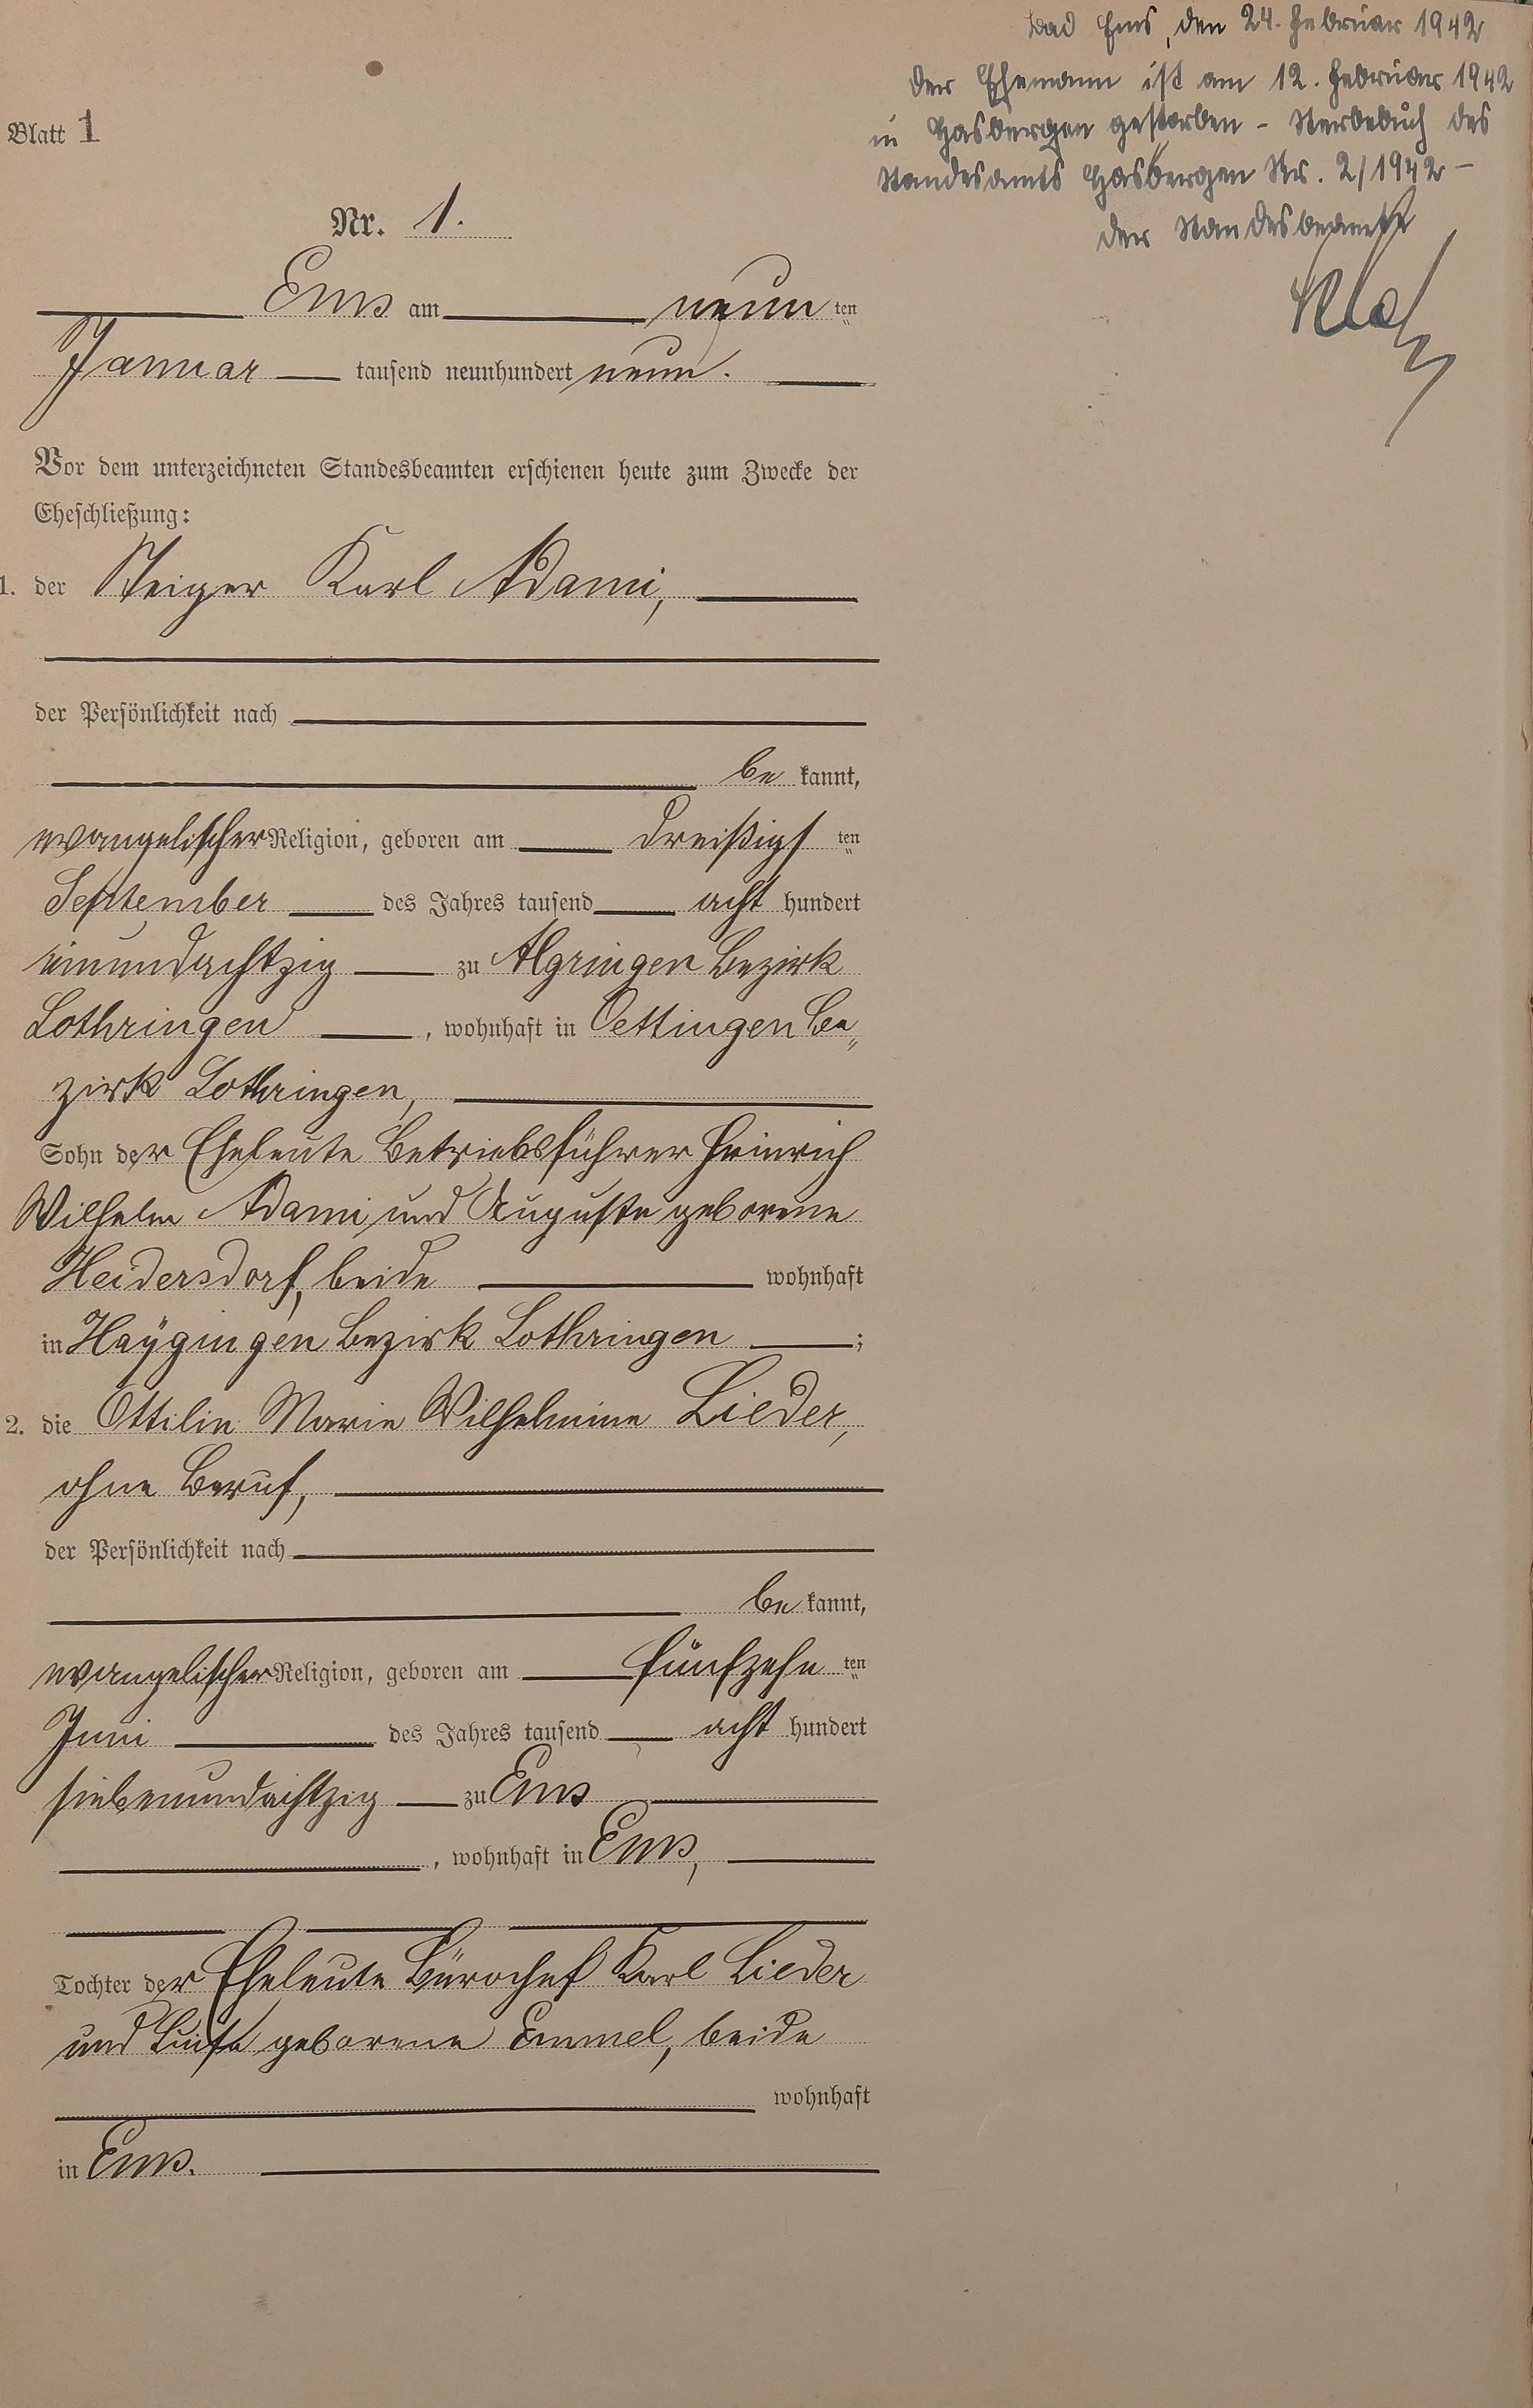 Bad Ems, den 24. Februar 1942
Der Ehemann ist am 12. Februar 1942
in Hasbergen gestorben - Sterbebuch des
Standesamts Hasbergen Nr. 2/1942 -
Der Standesbeamte
Blatt 1
Nr. 1.
Ems am neun ten
Januar tausend neunhundert neun.
Vor dem unterzeichneten Standesbeamten erschienen heute zum Zwecke der
Eheschließung:
1. der Steiger Karl Adami,
der Persönlichkeit nach
be kannt,
evangelischer Religion, geboren am dreißigs ten
September des Jahres tausend acht hundert
einundachtzig zu Algringen Bezirk
Lothringen, wohnhaft in Oettingen Be„
zirk Lothringen,
Sohn der Eheleute Betriebsführer Heinrich
Wilhelm Adami und Auguste geborene
Heidersdorf, beide wohnhaft
in Hayingen Bezirk Lothringen ;
2. die Ottilie Marie Wilhelmine Lieder,
ohne Beruf,
der Persönlichkeit nach
be kannt,
evangelischer Religion, geboren am fünfzehn ten
Juni des Jahres tausend acht hundert
siebenundachtzig zu Ems
, wohnhaft in Ems,
Tochter der Eheleute Bürochef Karl Lieder
und Luise geborene Emmel, beide
wohnhaft
in Ems.